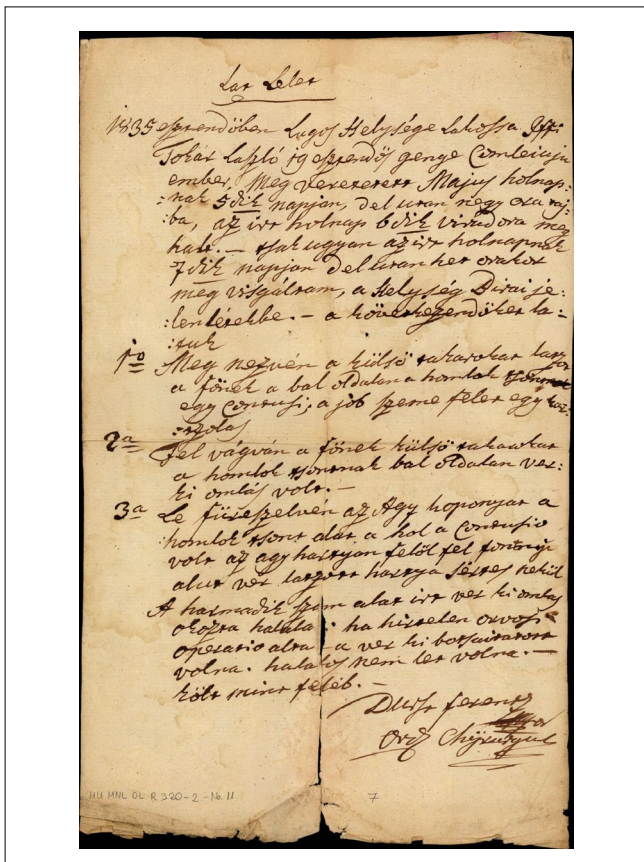 Lat Lelet
1835 esztendőben Lugos Helysége Lakossa Iffi:
Tokár László 19 esztendős genge Comleiuju
ember, Meg veretetett Május holnap:
:nak 5dik napjan, del utan negy ora taj:
:ba, az irt holnap 6dik viradora meg
halt. – tsak ugyan az irt holnapnak
7dik napjan del utan het orakor
meg visgáltam, a Helység Birai je:
:lentétekbe. – a következendőket la:
:tuk
1o Meg nezvén a külső takarokat
a főnek a bal oldalan a homlok
egy Contusi; a job szeme felet egy
2a Fel vágván a főnek külső takarokat
a homlok tsontnak bal oldalan ver:
:ki omlás volt. –
3a Le füreszelvén az Agy koponyat a
homlok tsont alat a hol a Contusio
volt az agy hartyan felöl fel fontnyi
alut ver latzott hartya sertes nekül
A harmadik szam alat irt ver ki omlas
okozta halala: ha hirtelen orvosi
operatio alta a ver ki botsaitatott
volna. halalos nem let volna. –
költ mint feleb. –
Ferentz
HU MNL OL R 320-2-No. 11.
7